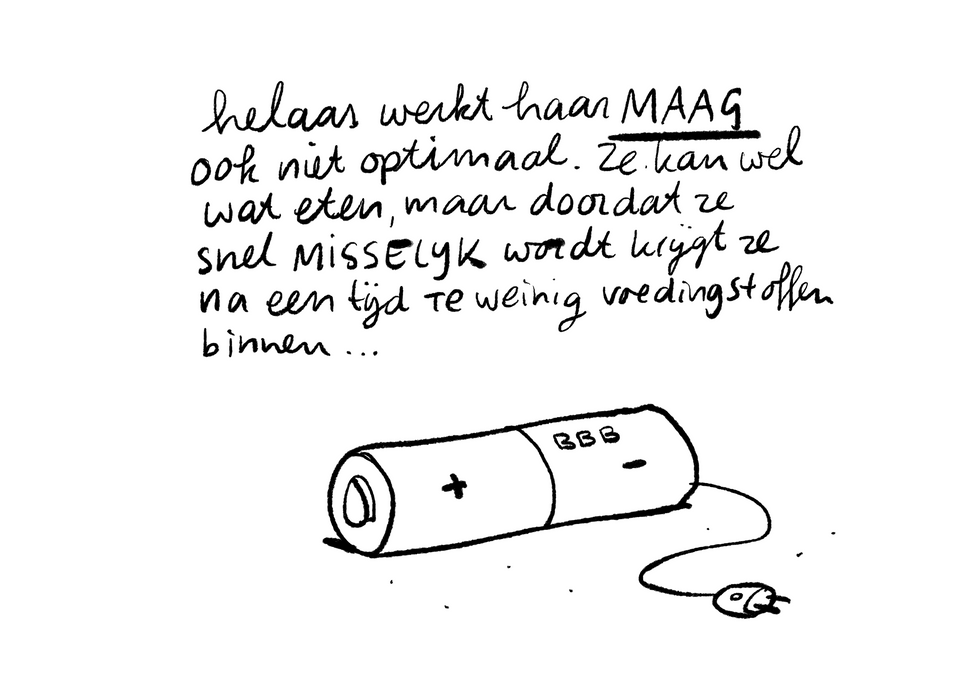 helaas werkt haar MAAG
ook niet optimaal. Ze kan wel
wat eten, maar doordat ze
snel MISSELYK wordt krijgt ze
na een tijd TE weinig voedingstoffen
binnen ...
BBB
+
-